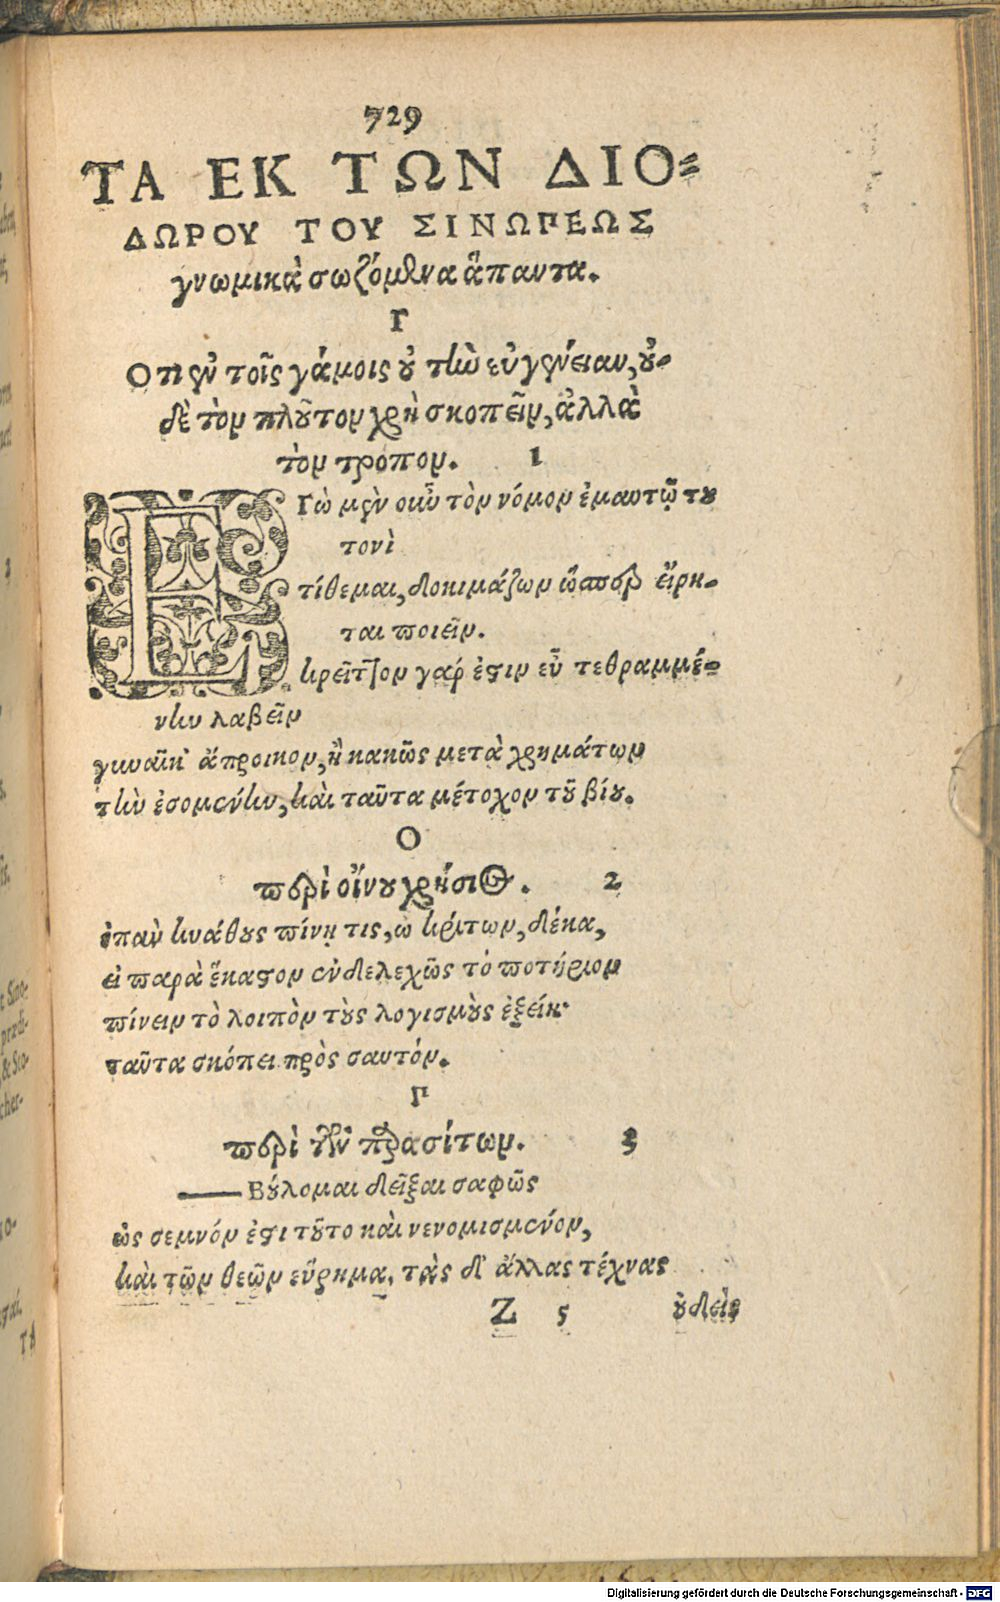 729
ΤΑ ΕΚ ΤΩΝ ΔΙΟ=
ΔΩΡΟΥ ΤΟΥ ΣΙΝΩΠΕΩΣ
γνωμικὰ σωζόμενα ἅπαντα.
Γ
Οτι ἐν τοῖς γάμοις οὐ τὴν εὐγένειαν, οὐ-
δὲ τὸν πλοῦτον χρὴ σκοπεῖν, ἀλλὰ
τὸν τρόπον. 1
ΕΓὼ μὲν οιῶ τὸν νόμον ἐμαυτῷ του
τονὶ
τίθεμαι, δοκιμάζων ὥσπερ εἴρη-
ται ποιεῖν.
κρεῖττον γάρ ἐστιν εὖ τεθραμμέ-
νην λαβεῖν
γυναῖκ' ἄπροικον, ἢ κακῶς μετὰ χρημάτων
τὴν ἐσομένην, καὶ ταῦτα μέτοχον τοῦ βίου.
Ο
περὶ οἴνου χρήσιος. 2
ἐπὰν κυάθους πίνῃ τις, ὦ κρίτων, δέκα,
εἰ παρὰ ἕκαστον ἐνδελεχῶς τὸ ποτήριον
πίνειν τὸ λοιπὸν τοὺς λογισμοὺς ἐξείκ·
ταῦτα σκόπει πρὸς σαυτόν.
Γ
περὶ τῶν παρασίτων. 3
— Βούλομαι δεῖξαι σαφῶς
ὡς σεμνόν ἐστι τοῦτο καὶ νενομισμένον,
καὶ τῶν θεῶν εὕρημα, τὰς δ' ἄλλας τέχνας
Z 5 οὐδεὶς
Digitalisierung gefördert durch die Deutsche Forschungsgemeinschaft - DFG